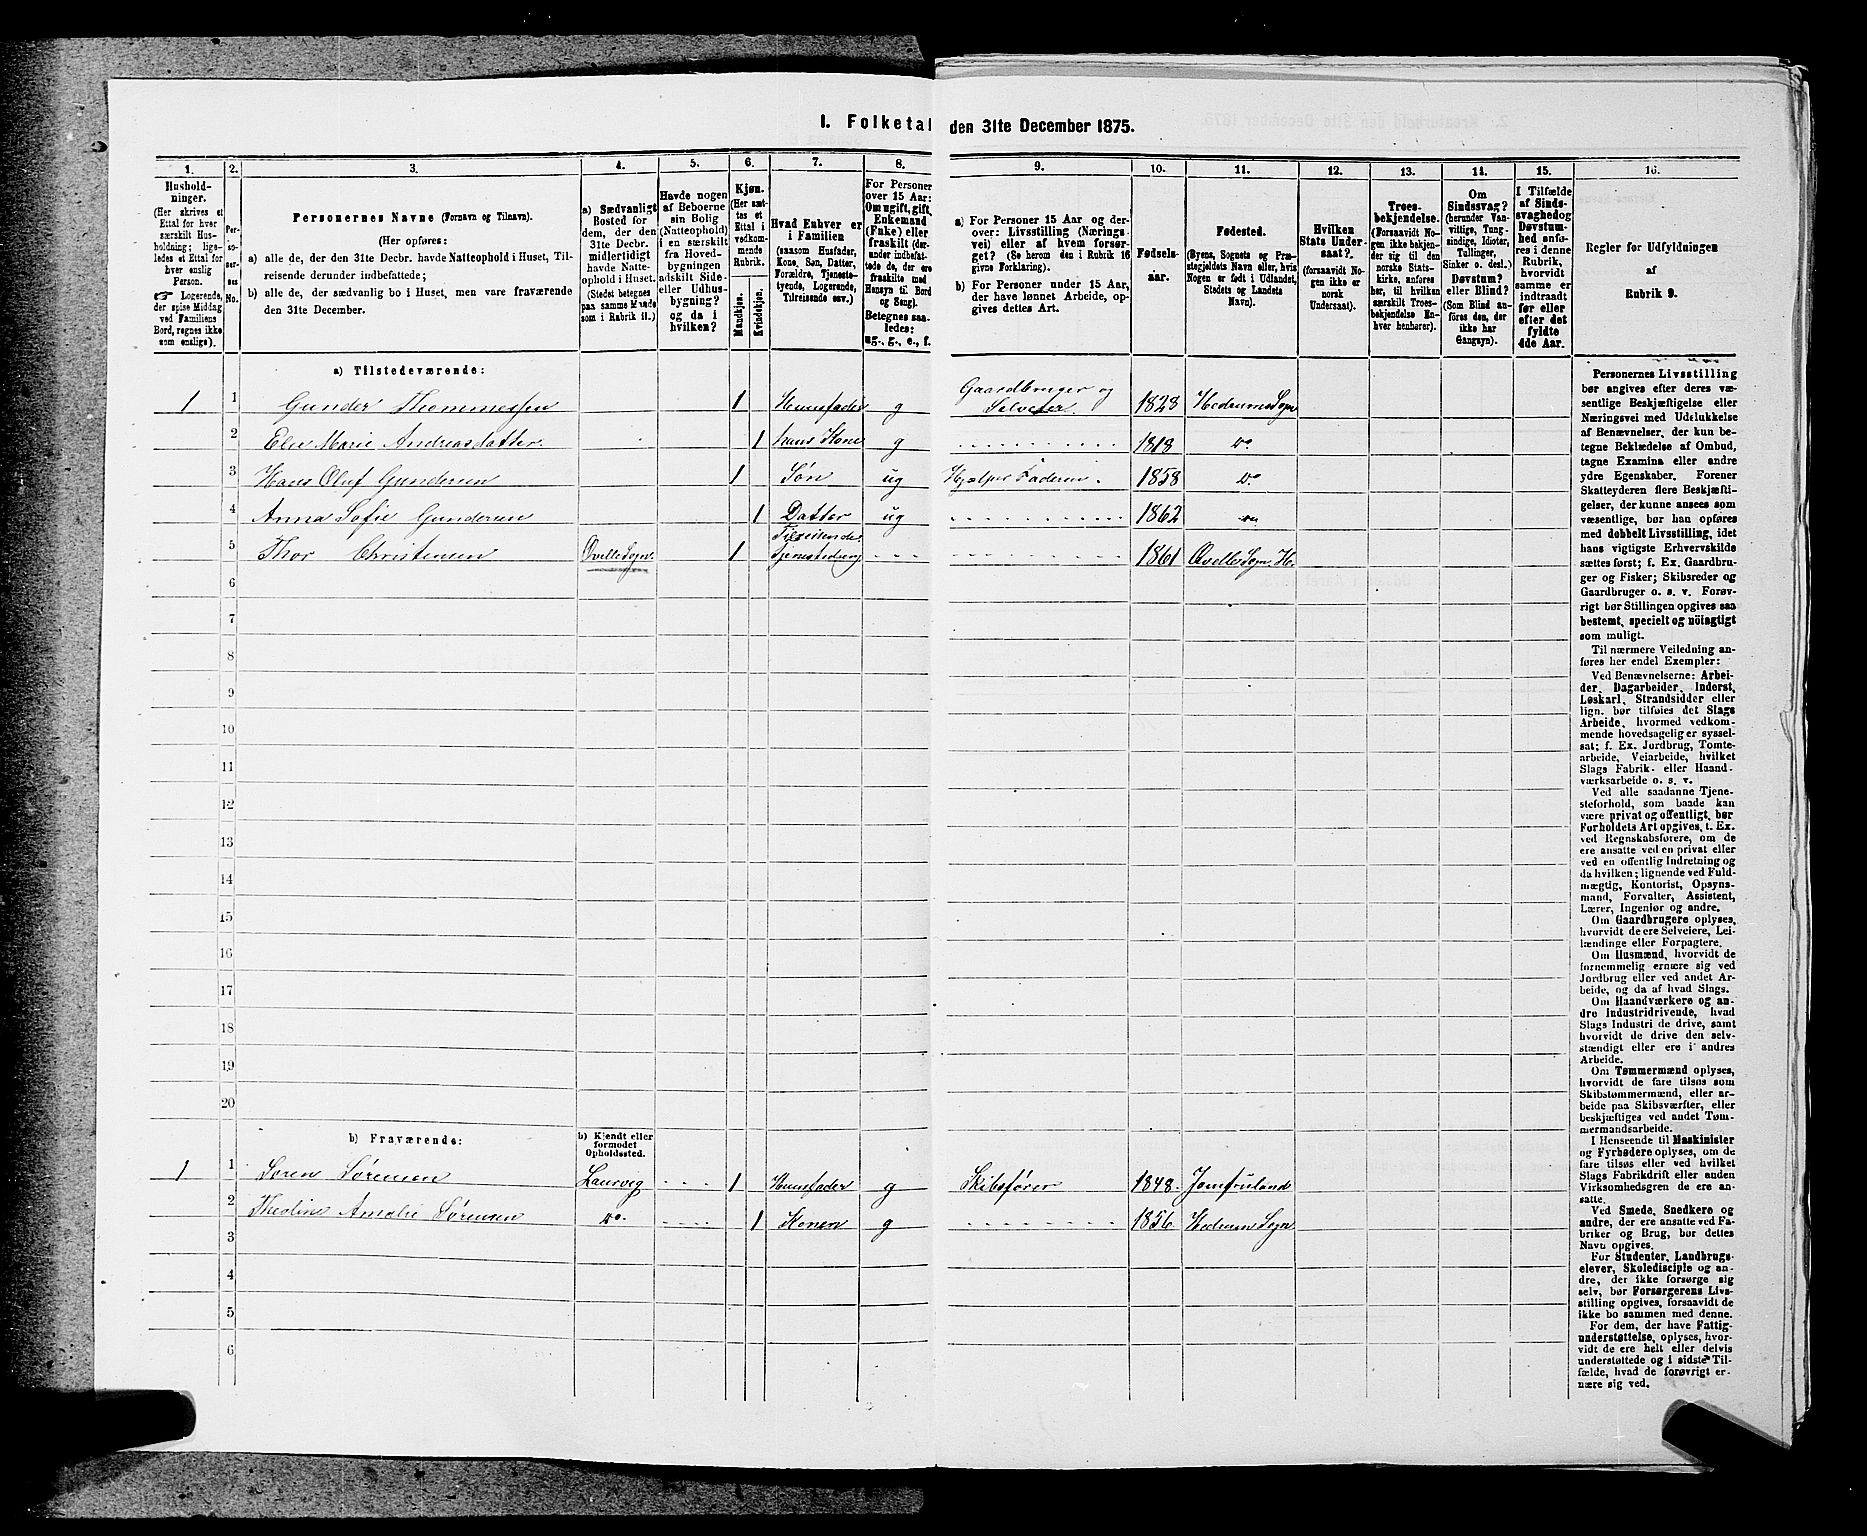 I. Folketal den 31te December 1875.
1.
2.
3.
4.
5.
6.
7.
8.
9.
10.
11.
12.
13.
14.
15.
16.
Hushold-
ninger.
(Her skrives et
Ettal for hver
særskilt Hus-
holdning; lige-
ledes et Ettal for
hver enslig
Person.
☞ Logerende,
der spise Middag
ved Familiens
Bord, regnes ikke
som enslige).
Per-
so-
ner-
nes
No.
Personernes Navne (Fornavn og Tilnavn).
(Her opføres:
a) alle de, der den 31te Decbr. havde Natteophold i Huset, Til-
reisende derunder indbefattede;
b) alle de, der sædvanlig bo i Huset, men vare fraværende
den 31te December.
a) Sædvanligt
Bosted for
dem, der den
31te Decbr.
midlertidigt
havde Natte-
ophold i Huset.
(Stedet betegnes
paa samme Maade
som i Rubrik 11.)
Havde nogen
af Beboerne
sin Bolig
(Natteophold)
i en særskilt
fra Hoved-
bygningen
adskilt Side-
eller Udhus-
bygning?
og da i
hvilken?
Kjøn.
(Her sæt-
tes et
Ettal i
vedkom-
mende
Rubrik.
Mandkjøn.
Kvindekjøn.
Hvad Enhver er
i Familien
(saasom Husfader,
Kone, Søn, Datter,
Forældre, Tjeneste-
tyende, Logerende,
Tilreisende osv.)
For Personer
over 15 Aar:
Om ugift, gift,
Enkemand
(Enke) eller
fraskilt (der-
under indbefat-
tede de, der ere
fraskilte med
Hensyn til Bord
og Seng).
Betegnes saa-
ledes:
ug., g., e., f.
a) For Personer 15 Aar og der-
over: Livsstilling (Nærings-
vei) eller af hvem forsør-
get? (Se herom den i Rubrik 16
givne Forklaring).
b) For Personer under 15 Aar,
der have lønnet Arbeide, op-
gives dettes Art.
Fødsels-
aar.
Fødested.
(Byens, Sognets og Præ-
stegjeldets Navn eller, hvis
Nogen er født i Udlandet,
Stedets og Landets
Navn).
Hvilken
Stats Under-
saat?
(forsaavidt No-
gen ikke er
norsk
Undersaat).
Troes-
bekjendelse.
(Forsaavidt No-
gen ikke bekjen-
der sig til den
norske Stats-
kirke, anføres
her, til hvilken
særskilt Troes-
bekjendelse En-
hver henhører).
Om
Sindssvag?
(herunder Van-
vittige, Tung-
sindige, Idioter,
Tullinger,
Sinker o. desl.)
Døvstum?
eller Blind?
(Som Blind an-
føres den, der
ikke har
Gangsyn).
I Tilfælde
af Sinds-
svaghed og
Døvstum-
hed anfø-
res i denne
Rubrik,
hvorvidt
samme er
indtraadt
før eller
efter det
fyldte
4de Aar.
Regler for Udfyldningen
af
Rubrik 9.
a) Tilstedeværende:
1 1 Gunder Thommessen 1 Huusfader g Gaardbruger og Selveier 1828 Hedrums Sogn
2 Else Marie Andreasdatter 1 hans Kone g 1818 do
3 Hans Oluf Gundersen 1 Søn ug Hjælper Faderen. 1858 do
4 Anna Sofie Gundersen 1 Datter ug 1862 do
5 Thor Christensen Qvelle Sogn. 1 Tilreisende 1861 Qvelle Sogn, He.
6
7
8
9
10
11
12
13
14
15
16
17
18
19
20
b) Fraværende:
b) Kjendt eller
formodet
Opholdssted.
1 1 Søren Sørensen Laurvig 1 Huusfader g Skibsfører 1848. Jomfruland
2 Theoline Amalie Sørensen do. 1 Konen g 1856 Hedrum Sogn
3
4
5
6
Personernes Livsstilling
bør angives efter deres væ-
sentlige Beskjæftigelse eller
Næringsvei med Udelukkelse
af Benævnelser, der kun be-
tegne Beklædelse af Ombud,
tagne Examina eller andre
ydre Egenskaber. Forener
Skatteyderen flere Beskjæfti-
gelser, der kunne ansees som
væsentlige, bør han opføres
med dobbelt Livsstilling, idet
hans vigtigste Erhvervskilde
sættes først; f. Ex. Gaardbru-
ger og Fisker; Skibsreder og
Gaardbruger o. s. v. Forøv-
rigt bør Stillingen opgives saa
bestemt, specielt og nöiagtigt
som muligt.
Til nærmere Veiledning an-
føres her endel Exempler:
Ved Benævnelserne: Arbei-
der, Dagarbeider, Inderst,
Løskarl, Strandsidder eller
lign. bør tilføies det Slags
Arbeide, hvormed vedkom-
mende hovedsagelig er syssel-
sat; f. Ex. Jordbrug, Tomte-
arbeide, Veiarbeide, hvilket
Slags Fabrik- eller Haand-
værksarbeide o. s. v.
Ved alle saadanne Tjene-
steforhold, som baade kan
være privat og offentligt, bør
Forholdets Art opgives, t. Ex.
ved Regnskabsførere, om de
ere ansatte ved en privat eller
ved en offentlig Indretning og
da hvilken; lignende ved Fuld-
mægtig, Kontorist, Opsyns-
mand, Forvalter, Assistent,
Lærer, Ingeniør og andre.
Om Gaardbrugere oplyses,
hvorvidt de ere Selveiere, Lei-
lændinge eller Forpagtere.
Om Husmænd, hvorvidt de
fornemmelig ernære sig ved
Jordbrug eller ved andet Ar-
beide, og da af hvad Slags.
Om Haandværkere og an-
dre Industridrivende, hvad
Slags Industri de drive, samt
hvorvidt de drive den selv-
stændigt eller ere i andres
Arbeide.
Om Tømmermænd oplyses,
hvorvidt de fare tilsøs som
Skibstømmermænd, eller ar-
beide paa Skibsværfter, eller
beskjæftiges ved andet Tøm-
mermandsarbeide.
I Henseende til Maskinister
og Fyrbødere oplyses, om de
fare tilsøs eller ved hvilket
Slags Fabrikdrift eller anden
Virksomhedsgren de ere an-
satte.
Ved Smede, Snedkere og
andre, der ere ansatte ved Fa-
briker og Brug, bør dettes
Navn opgives.
For Studenter, Landbrugs-
elever, Skoledisciple og an-
dre, der ikke forsørge sig
selv, bør Forsørgerens Livs-
stilling opgives, forsaavidt de
ikke bo sammen med denne.
For dem, der have Fattig-
understøttelse, oplyses, hvor-
vidt de ere helt eller delvis
understøttede og i sidste Til-
fælde, hvad de forøvrigt er-
nære sig ved.